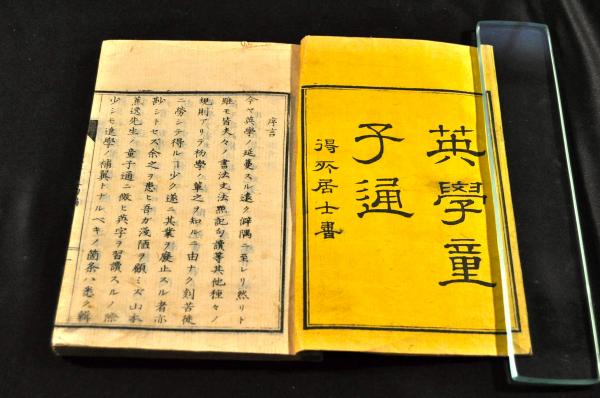 英學童
子通
得所居士書
序言
今マ英學ノ延蔓スル遠ク僻隅ニ至レリ然リト
雖モ皆夫々ノ書法文法黙記句讀等其他種々ノ
規則アリテ初學ノ輩之ヲ知ルニ由ナク刻苦徒
ニ勞シテ得ルヿ少ク遂ニ其業ヲ廢止スル者亦
尠シトセズ余之ヲ患ヒ吾ガ淺陋ヲ顧ミズ山本
蕉逸先生ノ童子通ニ倣ヒ英字ヲ習讀スルノ際
少シモ進學ノ補翼トナルベキノ箇条ハ悉ク輯